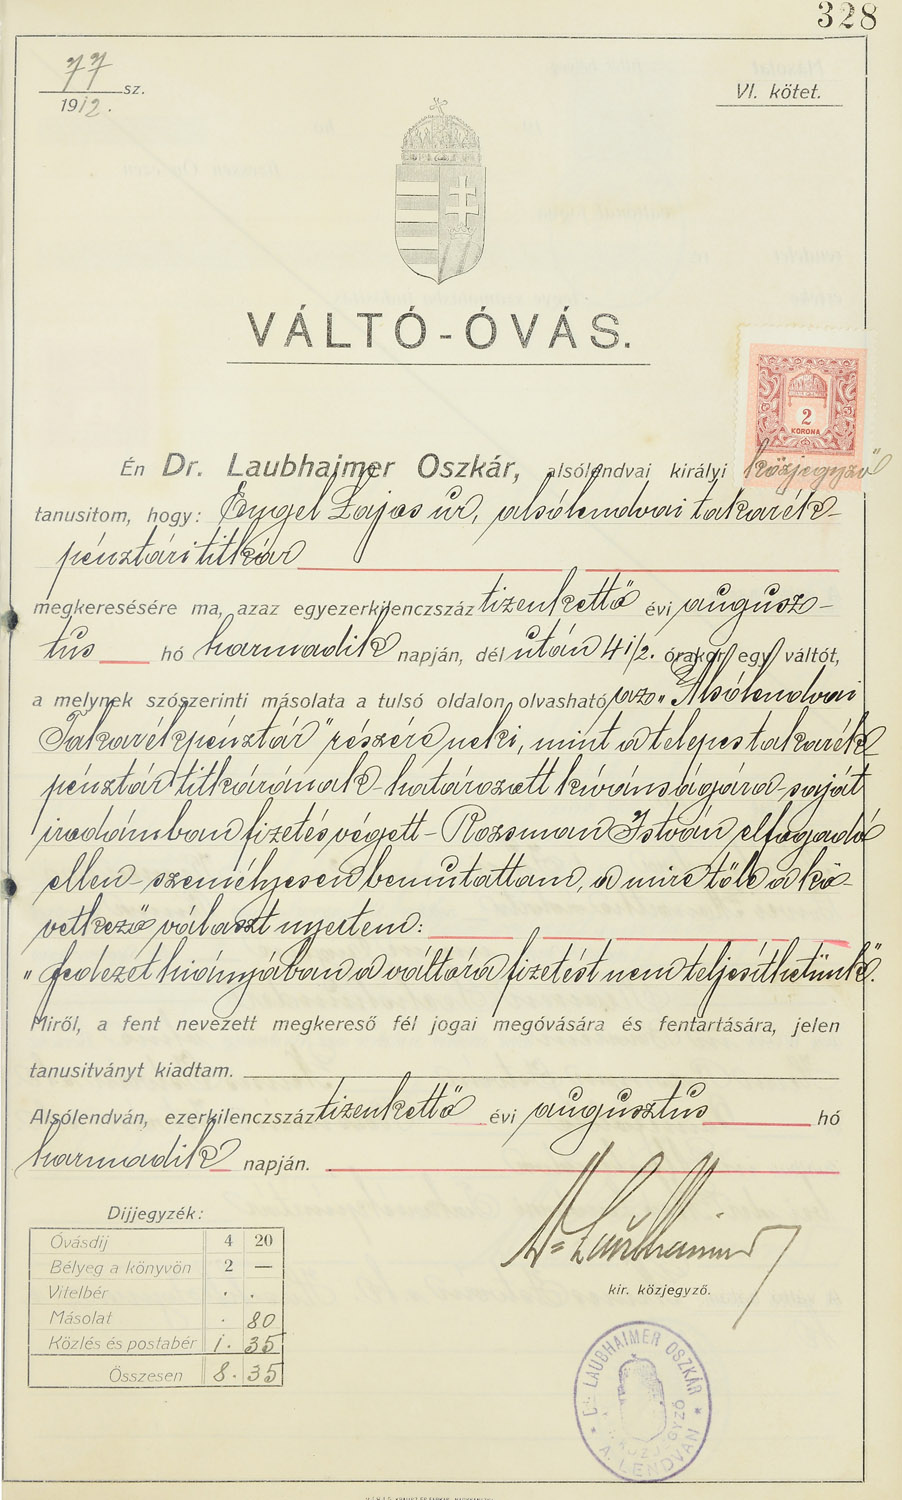 328
77 sz.
1912.
VI. kötet.
VÁLTÓ-ÓVÁS.
2
KORONA
Én Dr. Laubhaimer Oszkár, alsólendvai királyi közjegyző
tanusitom, hogy: Engel Lajos úr, alsólendvai takarék-
pénztári titkár
megkeresésére ma, azaz egyezerkilenczszáz tizenkettő évi augusz-
tus hó harmadik napján, dél után 4 1/2. órakor egy váltót,
a melynek szószerinti másolata a tulsó oldalon olvasható, az „Alsólendvai
Takarékpénztár" részére neki, mint a telepes takarék
pénztár titkárának - határozott kívánságára - saját
irodámban fizetés végett - Rozsman István elfogadó
ellen - személyesen bemutattam, a mire tőle a kö-
vetkező választ nyertem:
"fedezet hiányában a váltóra fizetést nem teljesíthetünk".
Miről, a fent nevezett megkereső fél jogai megóvására és fentartására, jelen
tanusitványt kiadtam.
Alsólendván, ezerkilenczszáz tizenkettő évi augusztus hó
harmadik napján.
Dr Laubhaimer
kir. közjegyző.
Díjjegyzék:
Óvásdíj 4 20
Bélyeg a könyvön 2 —
Vitelbér . .
Másolat . 80
Közlés és postabér 1. 35
Összesen 8. 35
Dr. LAUBHAIMER OSZKÁR
KÖZJEGYZŐ
A. LENDVÁN